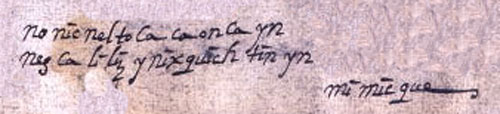 no nic nelto ca ca on ca yn
nez ca li liz y nix quich tin yn
mi mic que